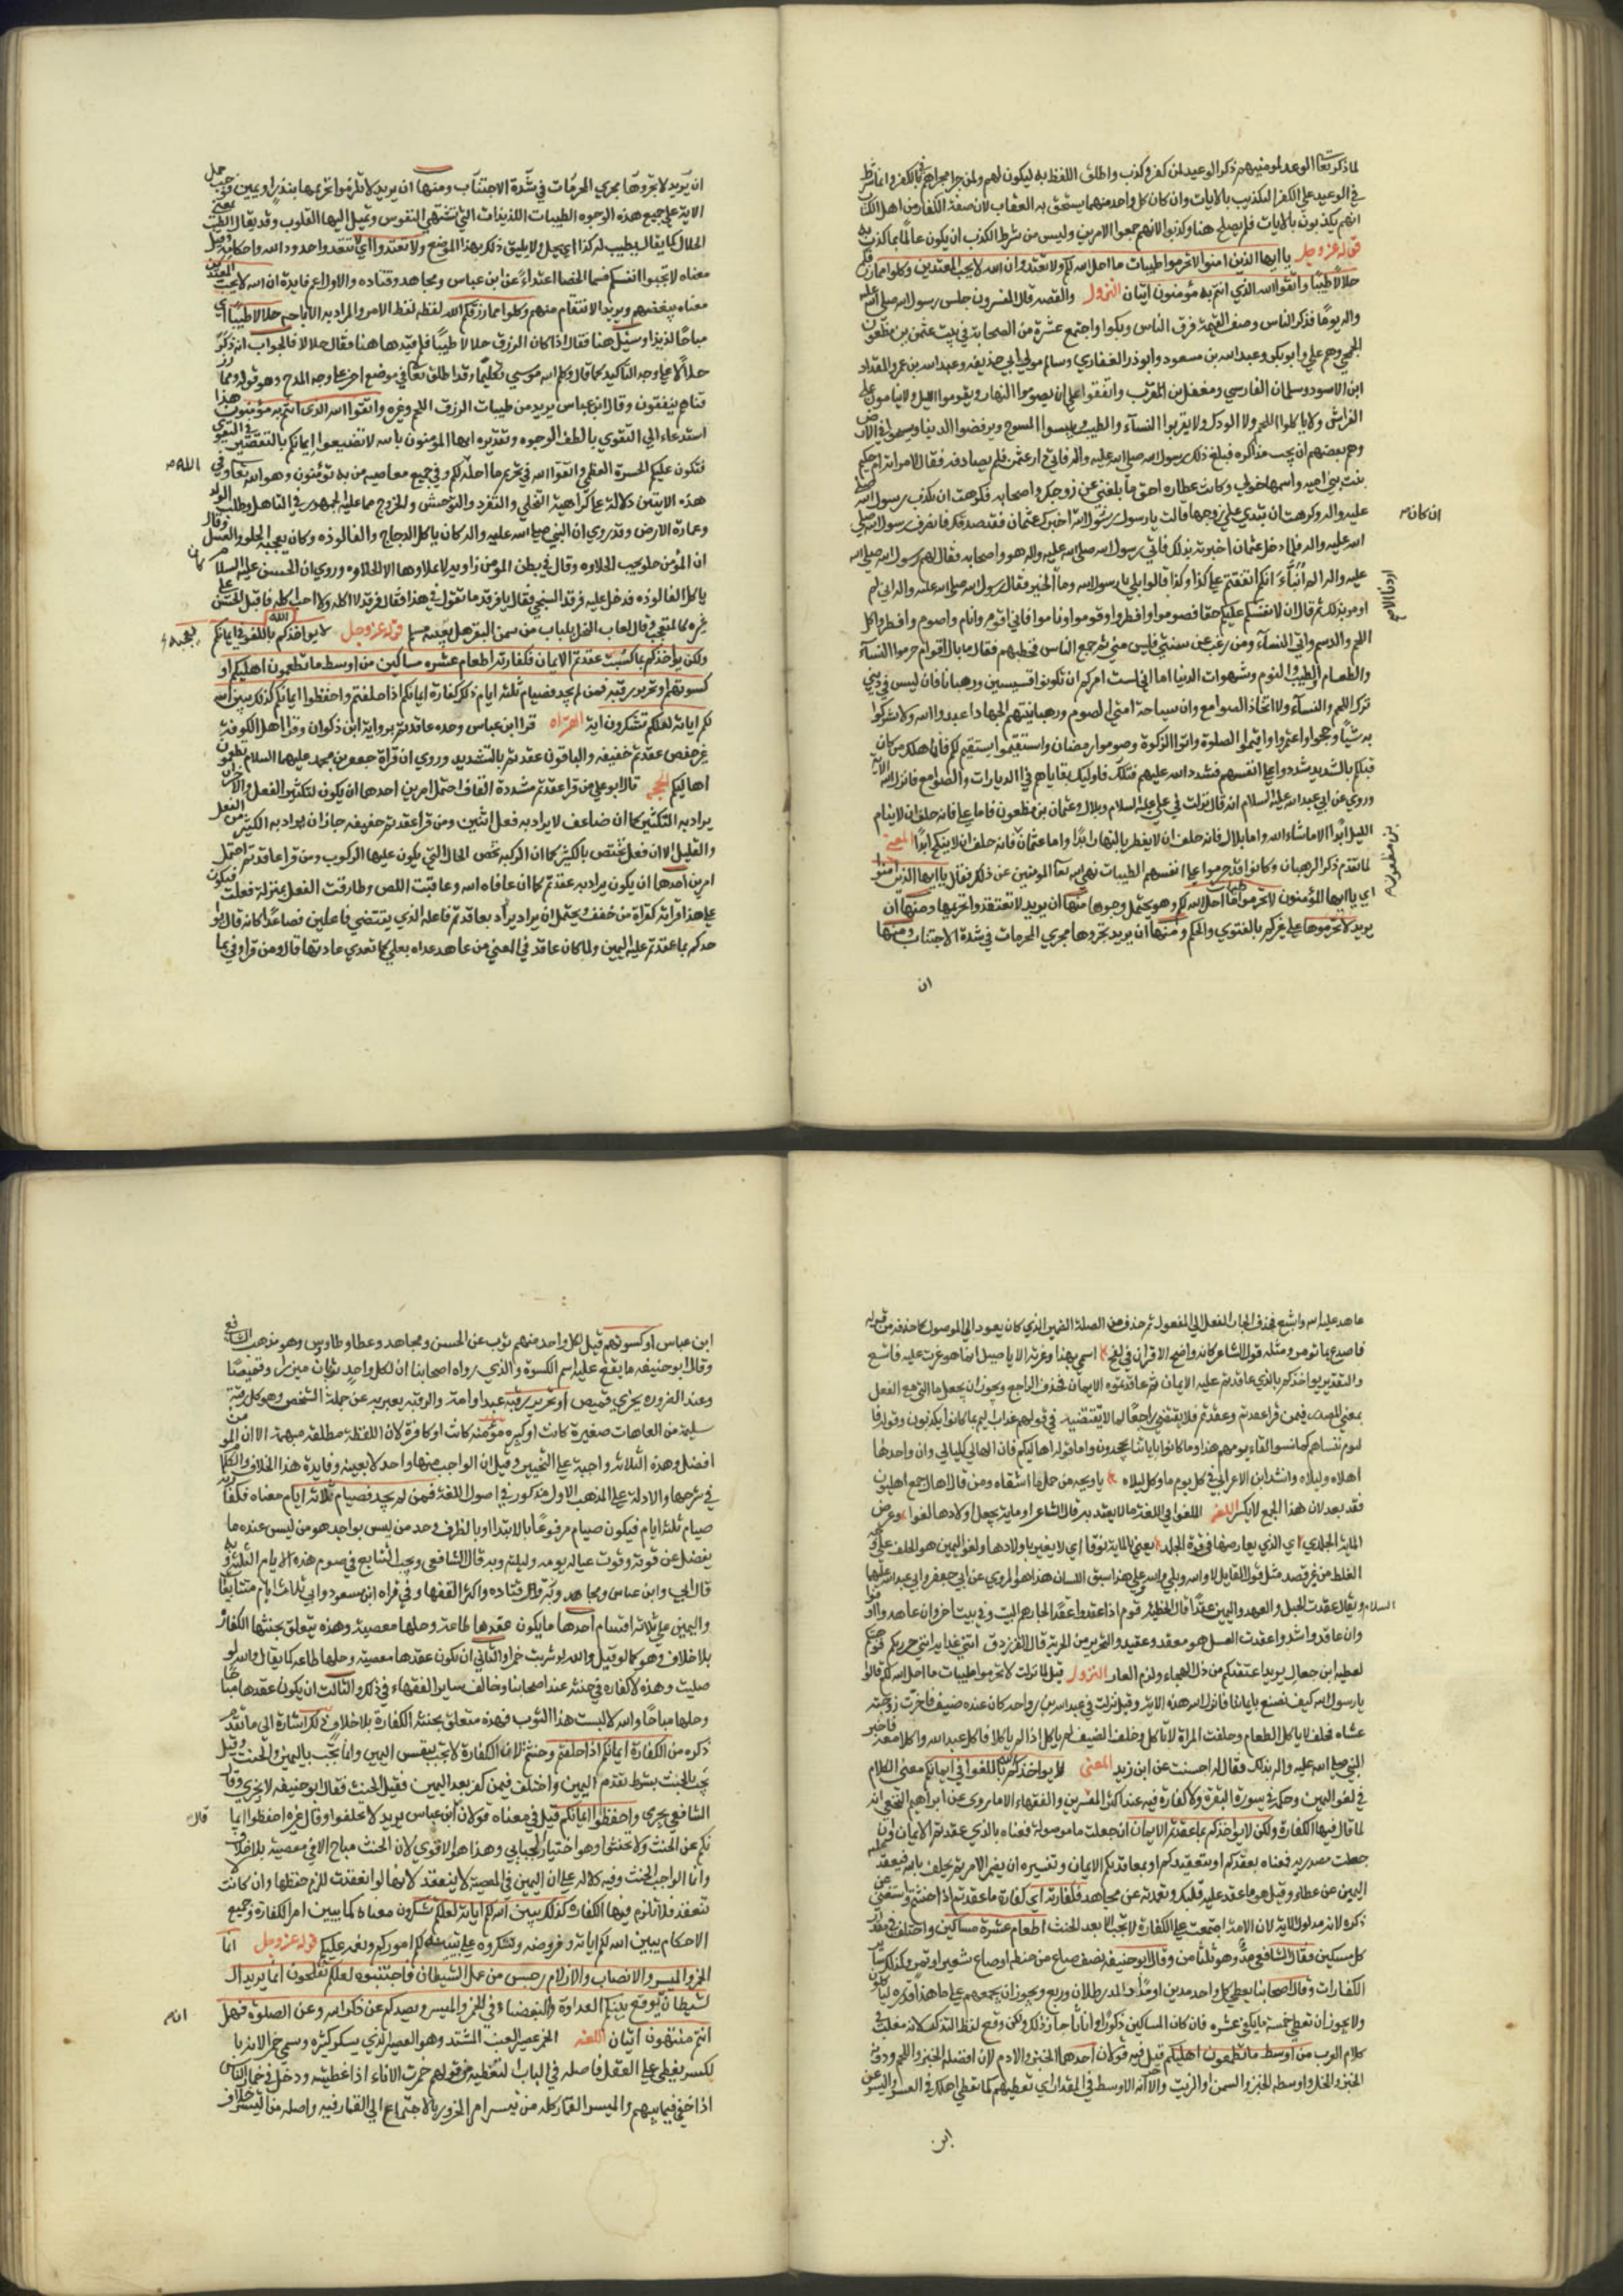 لما ذكر تعالى الوعد لمومنيهم ذكر الوعيد لمن كفر وكذب واطلق اللفظ به ليكون لهم ولمن جرا مجراهم في الكفر وانما شرط
في الوعيد على الكفر التكذيب بالايات وان كان كل واحد منهما يستحق به العقاب لان صفة الكفار من اهل الكتاب
انهم يكذبون بالايات فلم يصلح هنا وكذبوا لانهم جمعوا الامرين وليس من شرط الكذب ان يكون عالما بما كذب به
قوله عز وجل يا ايها الذين امنوا لا تحرموا طيبات ما احل الله لكم ولا تعتدوا ان الله لا يحب المعتدين وكلوا مما رزقكم
حلالا طيبا واتقوا الله الذي انتم به مؤمنون ايتان النزول والقصة قال المفسرون جلس رسول الله صلى الله عليه
واله يوما فذكر الناس وصف القيمة فرق الناس وبكوا واجتمع عشرة من الصحابة في بيت عثمن بن مظعون
الجمحي وهم علي وابو بكر وعبد الله بن مسعود وابو ذر الغفاري وسالم مولى ابي حذيفه وعبد الله بن عمر والمقداد
ابن الاسود وسلمان الفارسي ومعقل بن المقرن واتفقوا على ان يصوموا النهار ويقوموا الليل ولا يناموا على
الفراش ولا ياكلوا اللحم ولا الودك ولا يقربوا النسآء والطيب ويلبسوا المسوح ويرفضوا الدنيا ويسيحوا في الارض
وهم بعضهم ان يجب مذاكره فبلغ ذلك رسول الله صلى الله عليه واله فاتى دار عثمن فلم يصادفه فقال لامراته ام حكيم
بنت ابي اميه واسمها خولى وكانت عطاره احق ما بلغني عن زوجك واصحابه فكرهت ان تكذب رسول الله صلى
الله عليه واله وكرهت ان تبدي على زوجها قالت يا رسول الله ان كان اخبرك عثمان فقد صدقك فانصرف رسول الله صلى
الله عليه واله فلما دخل عثمان اخبرته بذلك فاتى رسول الله صلى الله عليه واله هو واصحابه فقال لهم رسول الله صلى الله
عليه واله الم انبأ انكم اتفقتم على كذا وكذا قالوا بلى يا رسول الله وما اردنا الا الخير فقال رسول الله صلى الله عليه واله اني لم
اومر بذلك ثم قال ان لانفسكم عليكم حقا فصوموا وافطروا وقوموا وناموا فاني اقوم وانام واصوم وافطر واكل
اللحم والدسم واتي النسآء ومن رغب عن سنتي فليس مني ثم جمع الناس فخطبهم فقال ما بال اقوام حرموا النسآء
والطعام والطيب والنوم وشهوات الدنيا اما اني لست امركم ان تكونوا قسيسين ورهبانا فان ليس في ديني
ترك اللحم والنسآء ولا اتخاذ الصوامع وان سياحة امتي الصوم ورهبانيتهم الجهاد اعبدوا الله ولا تشركوا
به شيئا وحجوا واعتمروا واقيموا الصلوة واتوا الزكوة وصوموا رمضان واستقيموا يستقيم لكم فانما هلك من كان
قبلكم بالتشديد شددوا على انفسهم فشدد الله عليهم فتلك فاوليك بقاياهم في الديارات والصوامع فانزل الله الاية
وروي عن ابي عبد الله عليه السلام انه قال نزلت في علي عليه السلام وبلال وعثمان بن مظعون فاما علي فانه حلف ان لا ينام
الليل ابدا الا ماشاء الله واما بلال فانه حلف ان لا يفطر بالنهار ابدا واما عثمان بن مظعون فانه حلف ان لا ينكح ابدا المعنى
لما تقدم ذكر الرهبان وكانوا قد حرموا على انفسهم الطيبات نهى الله تعالى المومنين عن ذلك فقال يا ايها الذين امنوا
اي يا ايها المؤمنون لا تحرموا طيبات ما احل الله لكم وهو يحتمل وجوها منها ان يريد لا تعتقدوا تحريمها ومنها ان
يريد لا تحرموها على غيركم بالفتوي والحكم ومنها ان يريد تجروها مجري المحرمات في شدة الاجتناب ومنها
ان
ان يريد لا تجروها مجري المحرمات في شدة الاجتناب ومنها ان يريد لا تلزموا تحريمها بنذر او يمين فوجب حمل
الاية على جميع هذه الوجوه الطيبات اللذيذات التي تشتهي النفوس وتميل اليها القلوب وقد يقال الطيب بمعنى
الحلال كما يقال يطيب له كذا اي يحل ولا يليق ذلك بهذا الموضع ولا تعتدوا اي لا تتعدوا حدود الله واحكامه وقيل
معناه لا تجبوا انفسكم فسما الخصا اعتداء عن ابن عباس ومجاهد وقتاده والاول اعم فايدة ان الله لا يحب المعتدين
معناه يبغضهم ويريد الانتقام منهم وكلوا مما رزقكم الله لفظه لفظ الامر والمراد به الاباحه حلالا طيبا اي
مباحا لذيذا وسئل هنا فقال اذا كان الرزق حلالا طيبا فلم قيدها هنا فقال حلالا فالجواب انه ذكر
حلالا على وجه التاكيد كما قال وكلم الله موسي تكليما وقد اطلق تعالى في موضع اخر على وجه المدح وهو قوله ومما رز
قناهم ينفقون وقال ابن عباس يريد من طيبات الرزق اللحم وغيره واتقوا الله الذى انتم به مؤمنون هذا
استدعاء الي التقوي بالطف الوجوه وتقديره ايها المؤمنون بالله لا تضيعوا ايمانكم بالتقصير في التقوى
فتكون عليكم الحسرة العظمي واتقوا الله في تحريم ما احل الله لكم وفي جميع معاصيه من به تؤمنون وهو الله تعالى وفي
هذه الايتين دلالة على كراهية التخلي والتفرد والتوحش والخروج مما عليه الجمهور في التاهل وطلب الولد
وعمارة الارض وقد روي ان النبي صلى الله عليه واله كان ياكل الدجاج والفالوذه وكان يعجبه الحلوا والعسل وقال
ان المؤمن حلو يحب الحلاوه وقال في بطن المومن زاويه لا يملاوها الا الحلاوه وروي ان الحسن عليه السلام كان
ياكل الفالوذه فدخل عليه فرقد السبخي فقال يا فرقد ما تقول في هذا فقال فرقد لا اكله ولا احب اكله فاقبل الحسن على
غيره كالمتعجب وقال لعاب النحل بلباب من سمن البقر هل يعيبه مسلم قوله عز وجل لا يواخذكم الله باللغو في ايمانكم
ولكن يواخذكم بما عقدتم الايمان فكفارته اطعام عشره مساكين من اوسط ما تطعمون اهليكم او
كسوتهم او تحرير رقبة فمن لم يجد فصيام ثلثة ايام ذلك كفارة ايمانكم اذا حلفتم واحفظوا ايمانكم كذلك يبين الله
لكم اياته لعلكم تشكرون اية القراه قرا ابن عباس وحده عاقدتم برواية ابن ذكوان وقرا اهل الكوفة
غير حفص عقدتم خفيفه والباقون عقدتم بالتشديد وروي ان قراة جعفر بن محمد عليهما السلام تطعمون
اهاليكم الحجه قال ابو علي من قرا عقدتم مشددة القاف احتمل امرين احدهما ان يكون لتكثير الفعل والاخر ان
يراد به التكثير كما ان ضاعف لا يراد به فعل اثنين ومن قرا عقدتم خفيفه جاز ان يراد به الكثير من الفعل
والقليل الا ان فعل يختص بالكثير كما ان الركبه تخص الحال التي يكون عليها الركوب ومن قرا عاقدتم احتمل
امرين احدهما ان يكون يراد به عقدتم كما ان عافاه الله وعاقبت اللص وطارقت الفعل بمنزلة فعلت فيكون
على هذا قراته كقراة من خفف ويحتمل ان يراد يراد بعاقدتم فاعله الذي يقتضي فاعلين فصاعدا كانه قال يوا
خدكم بما عقدتم عليه اليمين ولما كان عاقد في المعني من عاهد عداه بعلى كما تعدي عاد بتها قال ومن قراو في بما
عاهد عليه الله واتسع فحذف الجار الفعل الي المفعول ثم حذف من الصلة الضمير الذي كان يعود الي الموصول كما حذفه من قوله
فاصدع بما تومر ومثله قول الشاعر كانه واضح الاقران في لقح اسمي بهذا وغرته الا ياصيل انما هو عرت عليه فاتسع
والتقدير يواخذكم بالذي عاقدتم عليه الايمان ثم عاقدتموه الايمان فحذف الراجع ويجوز ان يجعل ما التي مع الفعل
بمعني المصدر فيمن قرا عقدتم وعقدتم فلا يقتضي راجعا كما لا يقتضيه في قولهم عذاب اليم بما كانوا يكذبون وقوله فا
ليوم ننساهم كما نسوا لقاء يومهم هذا وما كانوا باياتنا يجحدون واما قوله اهاليكم فان اهالي كليالي وان واحدها
اهلاه وليلاه وانشد ابن الاعرابي في كل يوم ما وكل ليلاه يا ويحه من جمل ما اشقاه ومن قال اهال جمع اهلون
فقد بعد لان هذا الجمع لا يكسر اللغه اللغو في اللغة ما لا يعتد به قال الشاعر او ماية يجعل اولادها لغوا وعرض
الماية الجلدي اي الذي يعارضها في قوة الجلد يعني بالماية نوقا اي لا يغير باولادها ولغو اليمين هو الحلف على وجه
الغلط من غير قصد مثل قول القايل لا والله وبلى والله على هذا سبق اللسان هذا هو المروي عن ابي جعفر وابي عبد الله عليهما
السلام ويقال عقدت الحبل والعهد واليمين عقدا قال الحطيئه قوم اذا عقدوا عقدا لجارهم البيت وفي بيت اخر وان عاهدوا اوفوا
وان عاقدوا شدوا عقدت العسل هو معقد وعقيد والتحرير من الحرية قال الفرزدق ابني غدانه انني حررتكم فوهبتكم
لعطيه ابن جعال يريد اعتقتكم من ذل الهجاء ولزم العار النزول قيل لما نزلت لا تحرموا طيبات ما احل الله لكم قالوا
يا رسول الله كيف نصنع بايماننا فانزل الله هذه الاية وقيل نزلت في عبد الله بن رواحه كان عنده ضيف فاخرت زوجته
عشاه فحلف لا ياكل الطعام وحلفت المراة لا تاكل وحلف الضيف لا ياكل اذا لم ياكلا فاكل عبد الله واكلا معه فاخبر
النبي صلى الله عليه واله بذلك فقال له احسنت عن ابن زيد المعنى لا يواخذكم الله باللغو في ايمانكم معنى الكلام
في لغو اليمين وحكمه في سورة البقرة ولا كفارة فيه عند اكثر المفسرين والفقهاء الا ما روى عن ابراهيم النخعي انه
لما قال فيها الكفارة ولكن لا يواخذكم بما عقدتم الايمان ان جعلت ما موصولة فمعناه بالذي عقدتم الايمان وان
جعلت مصدريه فمعناه بعقدكم او بتعقيدكم او بمعاقدتكم الايمان وتفسيره ان يضمر الامر ثم يحلف بالله فيعقد عليه
اليمين عن عطاء وقيل هو ما عقد عليه قلبك وتعمدته عن مجاهد فكفارته اي كفارة ما عقدتم اذا حنثتم واستغني عن
ذكره لانه مدلول عليه لان الامة اجتمعت على الكفارة لا تجب الا بعد الحنث اطعام عشرة مساكين واختلف في مقدار
كل مسكين فقال الشافعي مد وهو ثلثا من وقال ابو حنيفه نصف صاع من حنطه او صاع شعير او تمر وكذلك ساير
الكفارات وقال اصحابنا يعطي كل واحد مدين او مدا والمد رطلان وربع ويجوز ان يجمعهم على ما هذا قدره لياكلون
ولا يجوز ان تعطي خمسة ما يكفي عشره فان كان المساكين ذكورا او اناثا جاز ذلك ولكن وقع لفظ التذكير لانه مغلب في
كلام العرب من اوسط ما تطعمون اهليكم قيل فيه قولان احدهما الخبز والادم لان افضله الخبز واللحم ودونه
الخبز والخل واوسطه الخبز والسمن او الزيت والاخر انه الاوسط في المقدار اي تعطيهم كما تعطي اهلك في العسر واليسر عن
ابن
ابن عباس او كسوتهم قيل لكل واحد منهم ثوب عن الحسن ومجاهد وعطا وطاوس وهو مذهب الشافعي
وقال ابو حنيفه ما يقع عليه اسم الكسوة والذي رواه اصحابنا ان لكل واحد ثوبان ميزر وقميصا
وعند الضروره يجزي قميص او تحرير رقبه عبد او امة والرقبه يعبر به عن جملة الشخص وهو كل رقبة
سليمة من العاهات صغيرة كانت او كبيره مؤمنه كانت او كافرة لان اللفظة مطلقة مبهمة الا ان المومن
افضل وهذه الثلاثه واجبة على التخيير وقيل ان الواجب منها واحد لا بعينه وفايدة هذا الخلاف والكلام
في شرحها والادلة على المذهب الاول مذكور في اصول الفقه فمن لم يجد فصيام ثلاثة ايام معناه فكفارته
صيام ثلثة ايام فيكون صيام مرفوعا بالابتدا او بالظرف وحد من ليس بواجد هو من ليس عنده ما
يفضل عن قوته وقوت عياله يومه وليلته وبه قال الشافعي ويجب التتابع في صوم هذه الايام الثلثة وبه
قال ابي وابن عباس ومجاهد وقتاده واكثر الفقها وفي قراه ابن مسعود وابي ثلاث ايام متتابعات
واليمين على ثلاثة اقسام احدها ما يكون عقدها طاعة وحلها معصية وهذه يتعلق بحنثها الكفارة
بلا خلاف وهو كما لو قيل والله لو شربت خمرا والثاني ان تكون عقدها معصية وحلها طاعه كما يقال والله لو
صليت وهذه لا كفاره في حنثه عند اصحابنا وخالف ساير الفقهاء في ذلك والثالث ان يكون عقدها مباحا
وحلها مباحا والله لا لبست هذا الثوب فهذه متعلق بحنثه الكفارة بلا خلاف ذلك اشارة الى ما تقدم
ذكره من الكفارة ايمانكم اذا حلفتم وحنثتم لان الكفارة لا تجب بنفس اليمين وانما تجب باليمين والحنث وقيل
تجب بالحنث بشرط تقدم اليمين واختلف فيمن كفر بعد اليمين فقيل الحنث فقال ابو حنيفه لا يجزي وقال
الشافعي يجزي واحفظوا ايمانكم قيل في معناه قولان قال ابن عباس يريد لا تحلفوا وقال غيره احفظوا ايما
نكم عن الحنث ولا تحنثوا وهو اختيار الجبايي وهذا هو الاقوي لان الحنث مباح الا في معصية بلا خلاف
وانما الواجب الحنث وفيه دلاله على ان اليمين في المعصية لا ينعقد لانها لو انعقدت للزم حفظها وان كانت
تنعقد فلا تلزم فيها الكفارة كذلك يبين الله لكم اياته لعلكم تشكرون معناه كما يبين امر الكفارة وجميع
الاحكام يبين الله لكم اياته وفروضه وتشكروه على تبيينه لكم اموركم ونعمه عليكم قوله عز وجل انما
الخمر والميسر والانصاب والازلام رجس من عمل الشيطان فاجتنبوه لعلكم تفلحون انما يريد ال
شيطان ان يوقع بينكم العداوة والبغضاء في الخمر والميسر ويصدكم عن ذكر الله وعن الصلوة فهل
انتم منتهون ايتان اللغه الخمر عصير العنب المشتد وهو العصير الذي يسكر كثيره وسمي خمرا لانه با
لسكر يغطي على العقل فاصله في الباب التغطيه من قولهم خمرت الاناء اذا غطيته ودخل في خمار الناس
اذا خفي فيما بينهم والميسر القمار كله من تيسر امر الجزور بالاجتماع الي القمار فيه واصله من اليسر خلاف